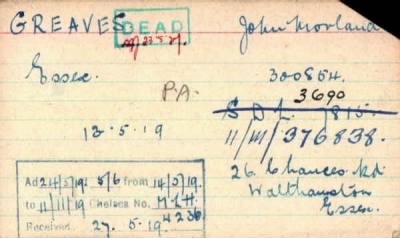 GREAVES
DEAD
John Morland
Essex.
300854.
P.A.
3690
S D L 7815.
13.5.19
11/M/376838.
26 Chances Rd.
Walthamstow
Essex.
Ad 24/5/19. 5/6 from 14/5/19.
to 11/11/19 Chelsea No. M.L.H.
4236
Received 27. 5. 19